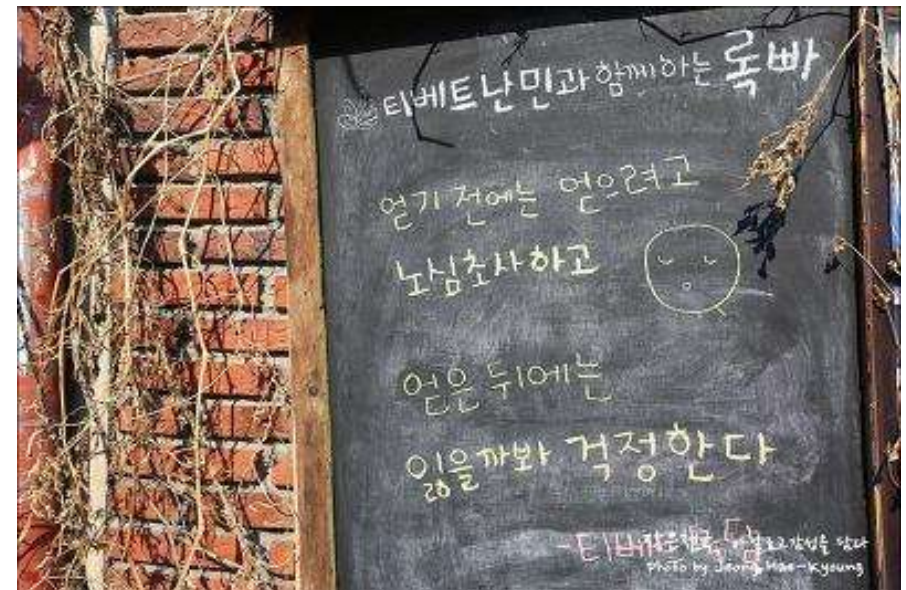 티베트난민과 함께하는 록빠
얻기 전에는 얻으려고
노심초사하고
얻은 뒤에는
잃을까봐 걱정한다
담다
Photo by Jeong Hae-Kyoung